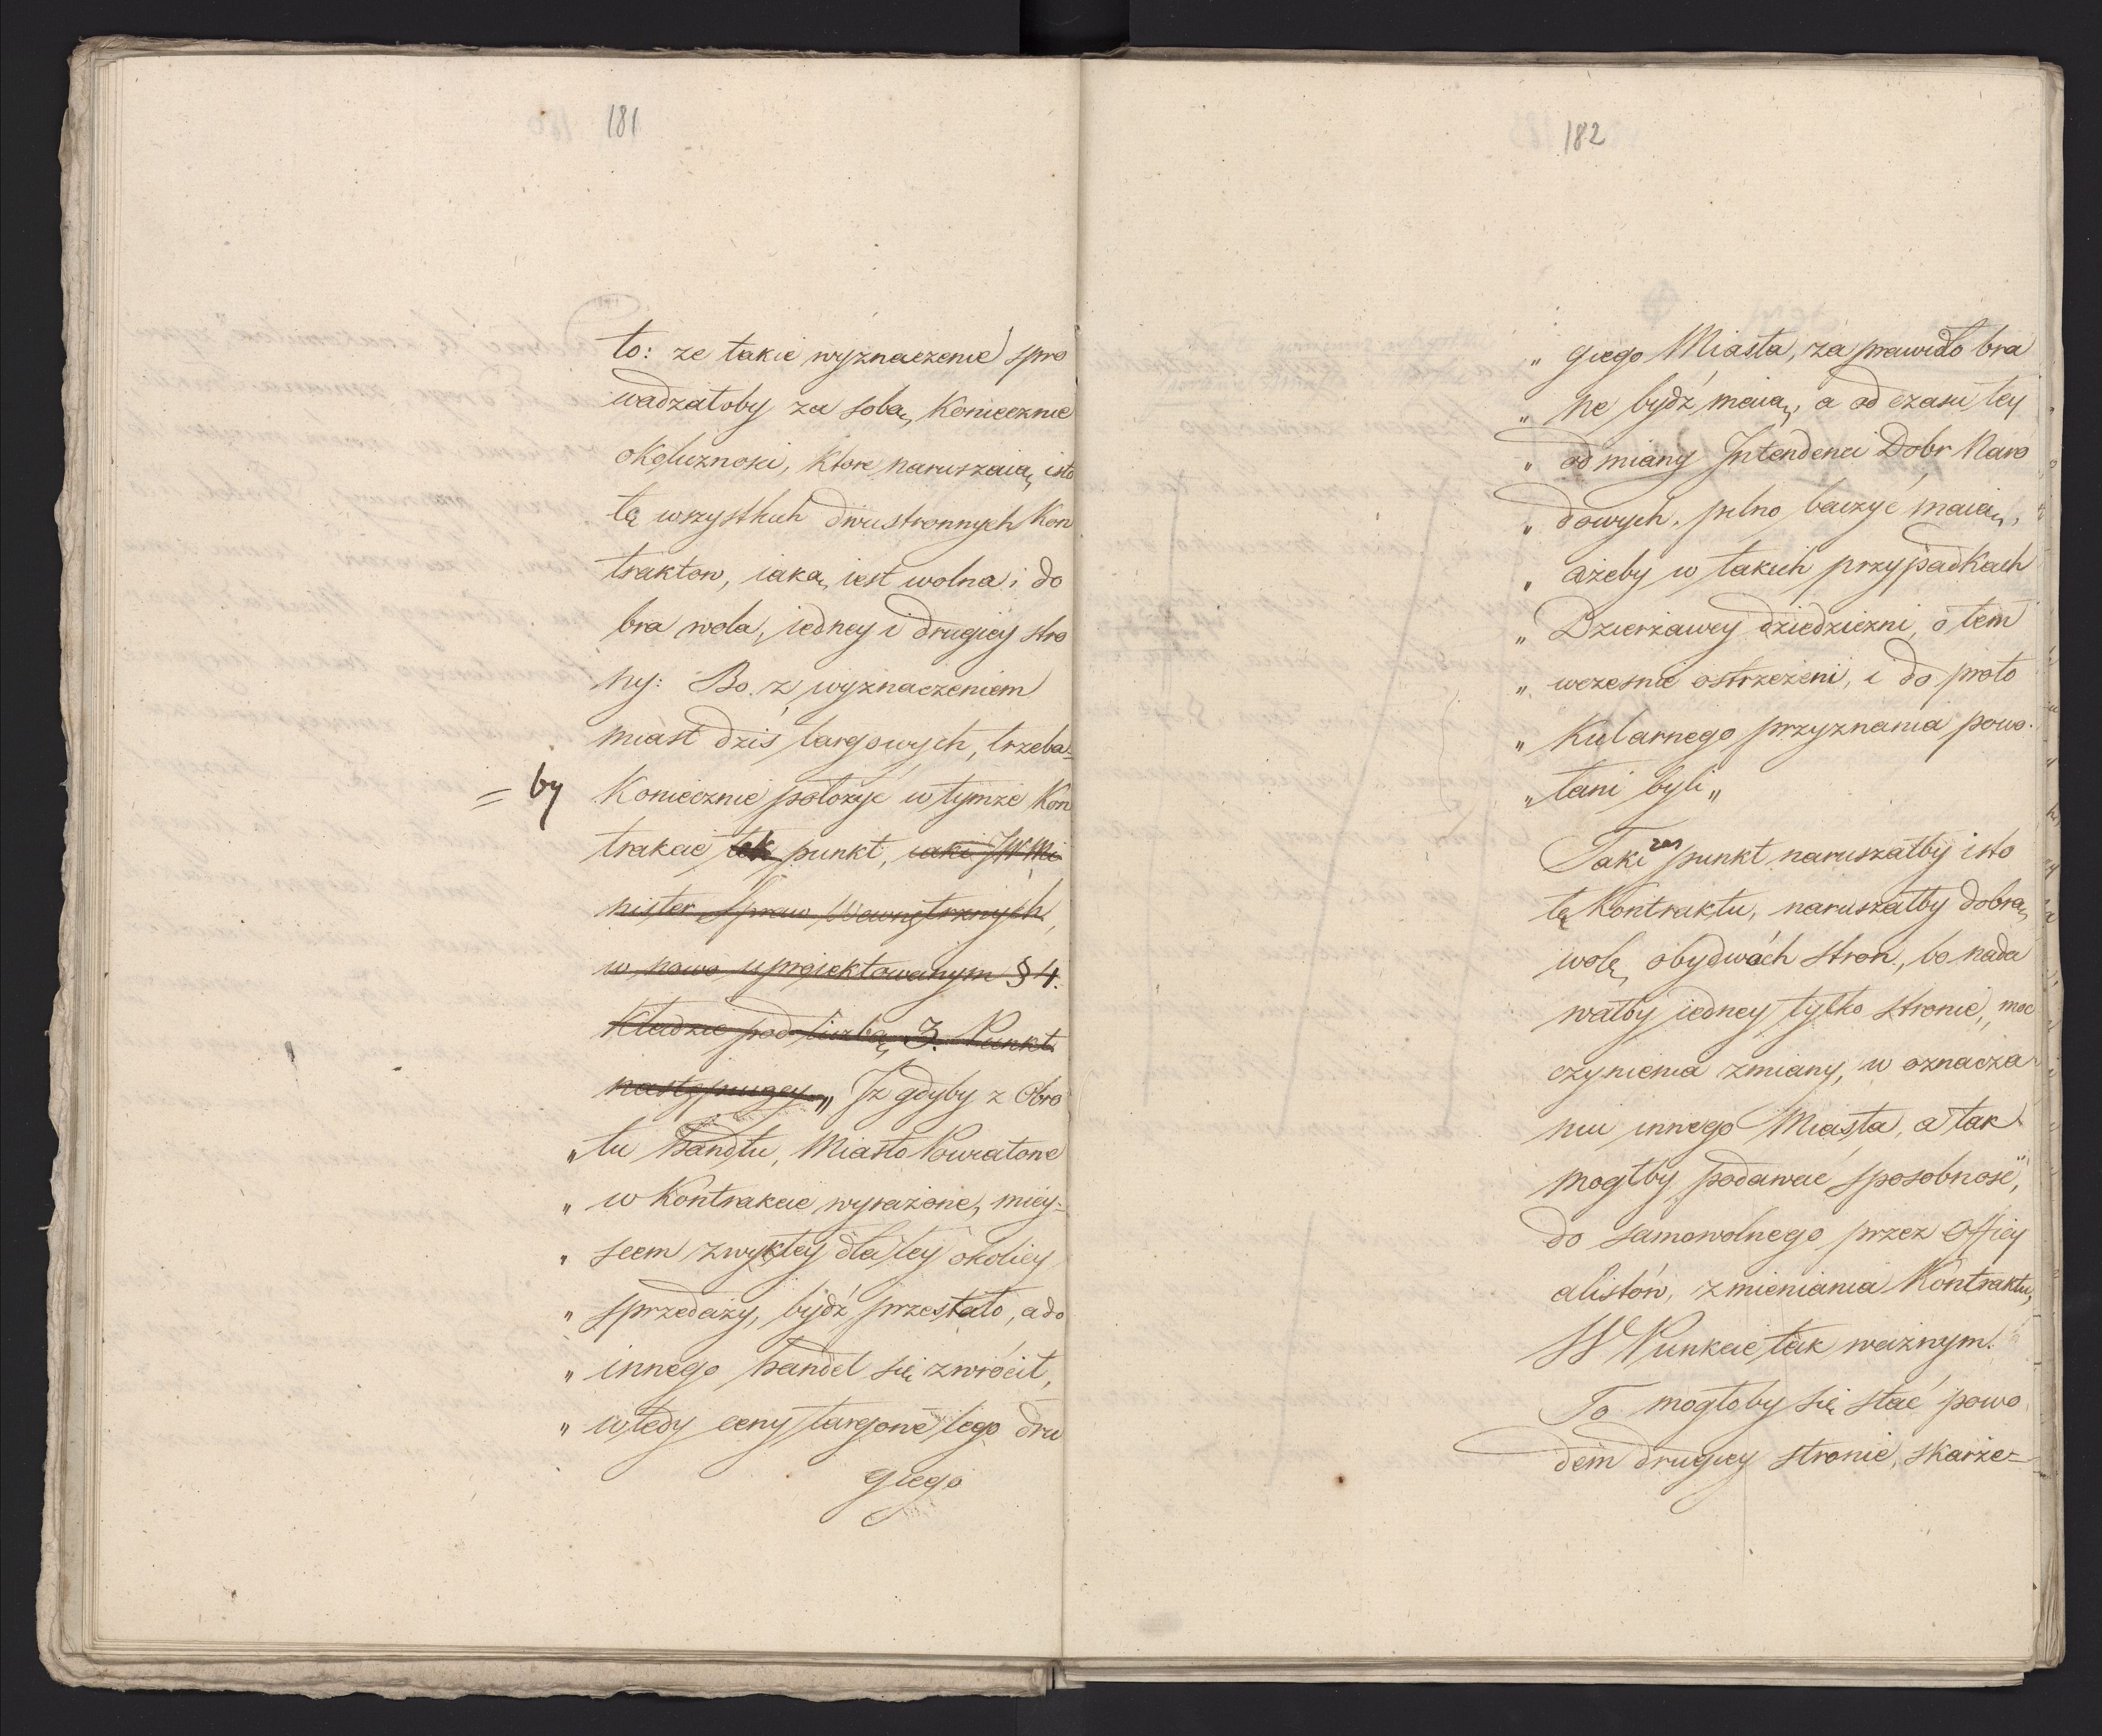 181
to: że takie wyznaczenie spro
wadzałoby za sobą, koniecznie
okoliczności, ktore naruszaią isto
tę wszystkich dwustronnych Kon
traktow, iaką iest wolna i do
bra wola, iedney i drugiey stro
ny: Bo z wyznaczeniem
miast dziś targowych, trzeba=
= by Koniecznie położyć w tymże Kon
trakcie tek punkt, iaki JW Mi
nister Spraw Wewnętrznych,
w nowo uproiektowanym § 4.
Kładzie pod liczbą 3. Punkt
następuiący „ Iż gdyby z Obro
„ tu handlu, Miasto Powiatowe
„ w Kontrakcie wyrażone, miey=
„ scem zwykłey dla tey okolicy
„ sprzedaży, bydź przestało, a do
„ innego handel się zwrócił,
„ wtedy ceny targowe tego dru
giego
182
„ giego Miasta, za prawidło bra
„ ne bydź maią, a od czasu tey
„ odmiany Intendenci Dobr Naro
„ dowych, pilno baczyć maią,
„ ażeby w takich przypadkach
„ Dzierżawcy dziedziczni, o tem
„ wczesnie ostrzeżeni, i do proto
„ kularnego przyznania powo.
„ łani byli „
Taki zas punkt naruszałby isto
tę Kontraktu, naruszałby dobrą
wolę, obydwóch stron, bo nada
wałby iedney tylko stronie, moc
czynienia zmiany, w oznacza
niu innego Miasta, a tak
mogłby podawać sposobność,
do samowolnego przez Officy
alistów, zmieniania Kontraktu,
W Punkcie tak ważnym.
To mogłoby się stać powo
dem drugiey stronie, skarże=